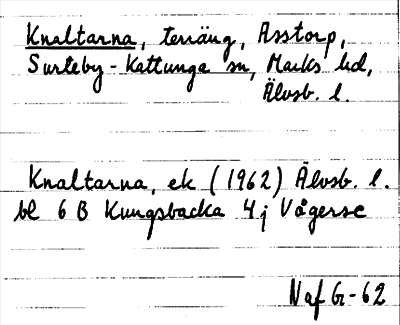 Knaltarna, terräng, Asstorp,
Surteby-Kattunga sn, Marks hd,
Älvsb. l.
Knaltarna, ek (1962) Älvsb. l.
bl 6 B Kungsbacka 4 j Vågerse
Naf G-62